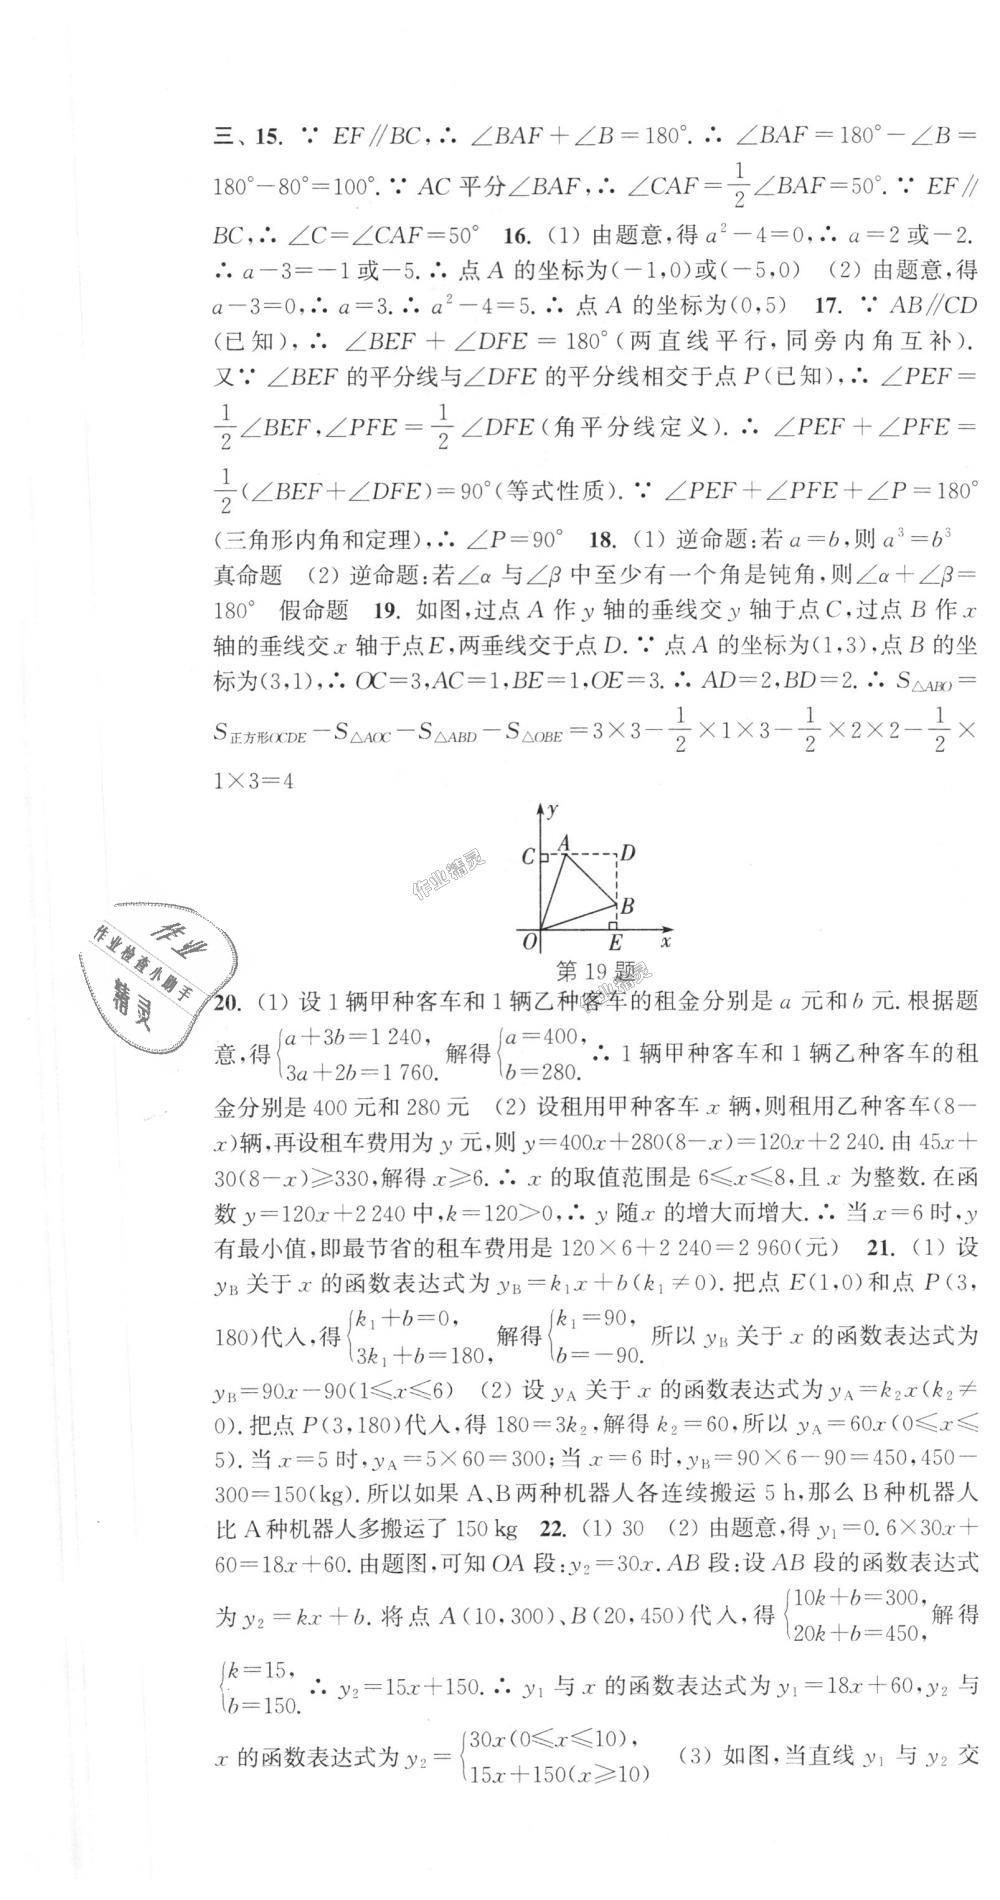 三、15. ∵ EF∥BC,∴ ∠BAF+∠B=180°.∴ ∠BAF=180°-∠B=
180°-80°=100°.∵ AC 平分∠BAF,∴ ∠CAF=1/2∠BAF=50°.∵ EF∥
BC,∴ ∠C=∠CAF=50° 16. (1) 由题意,得 a²-4=0,∴ a=2 或-2.
∴ a-3=-1 或-5.∴ 点 A 的坐标为(-1,0)或(-5,0) (2) 由题意,得
a-3=0,∴ a=3.∴ a²-4=5.∴ 点 A 的坐标为(0,5) 17. ∵ AB∥CD
(已知),∴ ∠BEF+∠DFE=180°(两直线平行,同旁内角互补).
又∵ ∠BEF 的平分线与∠DFE 的平分线相交于点 P(已知),∴ ∠PEF=
1/2∠BEF,∠PFE=1/2∠DFE(角平分线定义).∴ ∠PEF+∠PFE=
1/2(∠BEF+∠DFE)=90°(等式性质).∵ ∠PEF+∠PFE+∠P=180°
(三角形内角和定理),∴ ∠P=90° 18. (1) 逆命题:若 a=b,则 a³=b³
真命题 (2) 逆命题:若∠α 与∠β 中至少有一个角是钝角,则∠α+∠β=
180° 假命题 19. 如图,过点 A 作 y 轴的垂线交 y 轴于点 C,过点 B 作 x
轴的垂线交 x 轴于点 E,两垂线交于点 D.∵ 点 A 的坐标为(1,3),点 B 的坐
标为(3,1),∴ OC=3,AC=1,BE=1,OE=3.∴ AD=2,BD=2.∴ S△ABO=
S正方形OCDE-S△AOC-S△ABD-S△OBE=3×3-1/2×1×3-1/2×2×2-1/2×
1×3=4
y
C A D
B
O E x
第 19 题
20. (1) 设 1 辆甲种客车和 1 辆乙种客车的租金分别是 a 元和 b 元.根据题
意,得{a+3b=1 240, 3a+2b=1 760. 解得{a=400, b=280. ∴ 1 辆甲种客车和 1 辆乙种客车的租
金分别是 400 元和 280 元 (2) 设租用甲种客车 x 辆,则租用乙种客车(8-
x)辆,再设租车费用为 y 元,则 y=400x+280(8-x)=120x+2 240.由 45x+
30(8-x)≥330,解得 x≥6.∴ x 的取值范围是 6≤x≤8,且 x 为整数.在函
数 y=120x+2 240 中,k=120>0,∴ y 随 x 的增大而增大.∴ 当 x=6 时,y
有最小值,即最节省的租车费用是 120×6+2 240=2 960(元) 21. (1) 设
yB 关于 x 的函数表达式为 yB=k₁x+b(k₁≠0).把点 E(1,0)和点 P(3,
180)代入,得{k₁+b=0, 3k₁+b=180, 解得{k₁=90, b=-90. 所以 yB 关于 x 的函数表达式为
yB=90x-90(1≤x≤6) (2) 设 yA 关于 x 的函数表达式为 yA=k₂x(k₂≠
0).把点 P(3,180)代入,得 180=3k₂,解得 k₂=60,所以 yA=60x(0≤x≤
5).当 x=5 时,yA=5×60=300;当 x=6 时,yB=90×6-90=450,450-
300=150(kg).所以如果 A、B 两种机器人各连续搬运 5 h,那么 B 种机器人
比 A 种机器人多搬运了 150 kg 22. (1) 30 (2) 由题意,得 y₁=0.6×30x+
60=18x+60.由题图,可知 OA 段:y₂=30x.AB 段:设 AB 段的函数表达式
为 y₂=kx+b.将点 A(10,300)、B(20,450)代入,得{10k+b=300, 20k+b=450, 解得
{k=15, b=150. ∴ y₂=15x+150.∴ y₁ 与 x 的函数表达式为 y₁=18x+60,y₂ 与
x 的函数表达式为 y₂={30x(0≤x≤10), 15x+150(x≥10) (3) 如图,当直线 y₁ 与 y₂ 交
作业精灵
作业精灵
作业
作业检查小助手
精灵